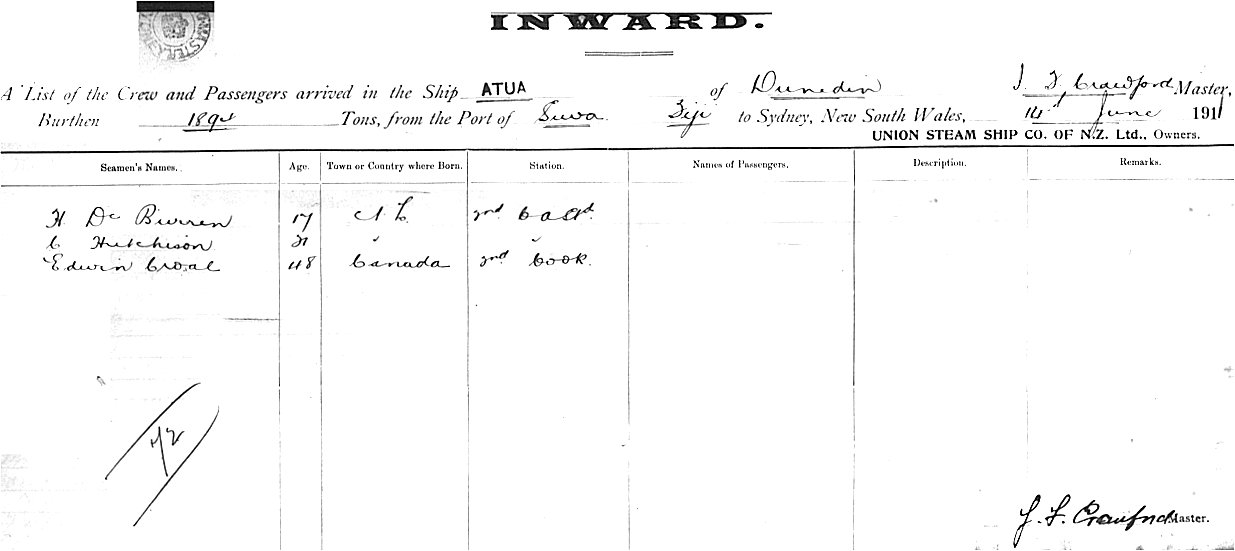 INWARD.
A List of the Crew and Passengers arrived in the Ship ATUA of Dunedin J F Crawford Master,
Burthen Tons, from the Port of Suva Fiji to Sydney, New South Wales, 14th June 1911
UNION STEAM SHIP CO. OF N.Z. Ltd., Owners.
Seamen's Names. Age. Town or Country where Born. Station. Names of Passengers. Description. Remarks.
H 17 2nd
C Hutchison 21 " "
Edwin Croal 48 Canada 2nd Cook.
J. F. Crawford Master.